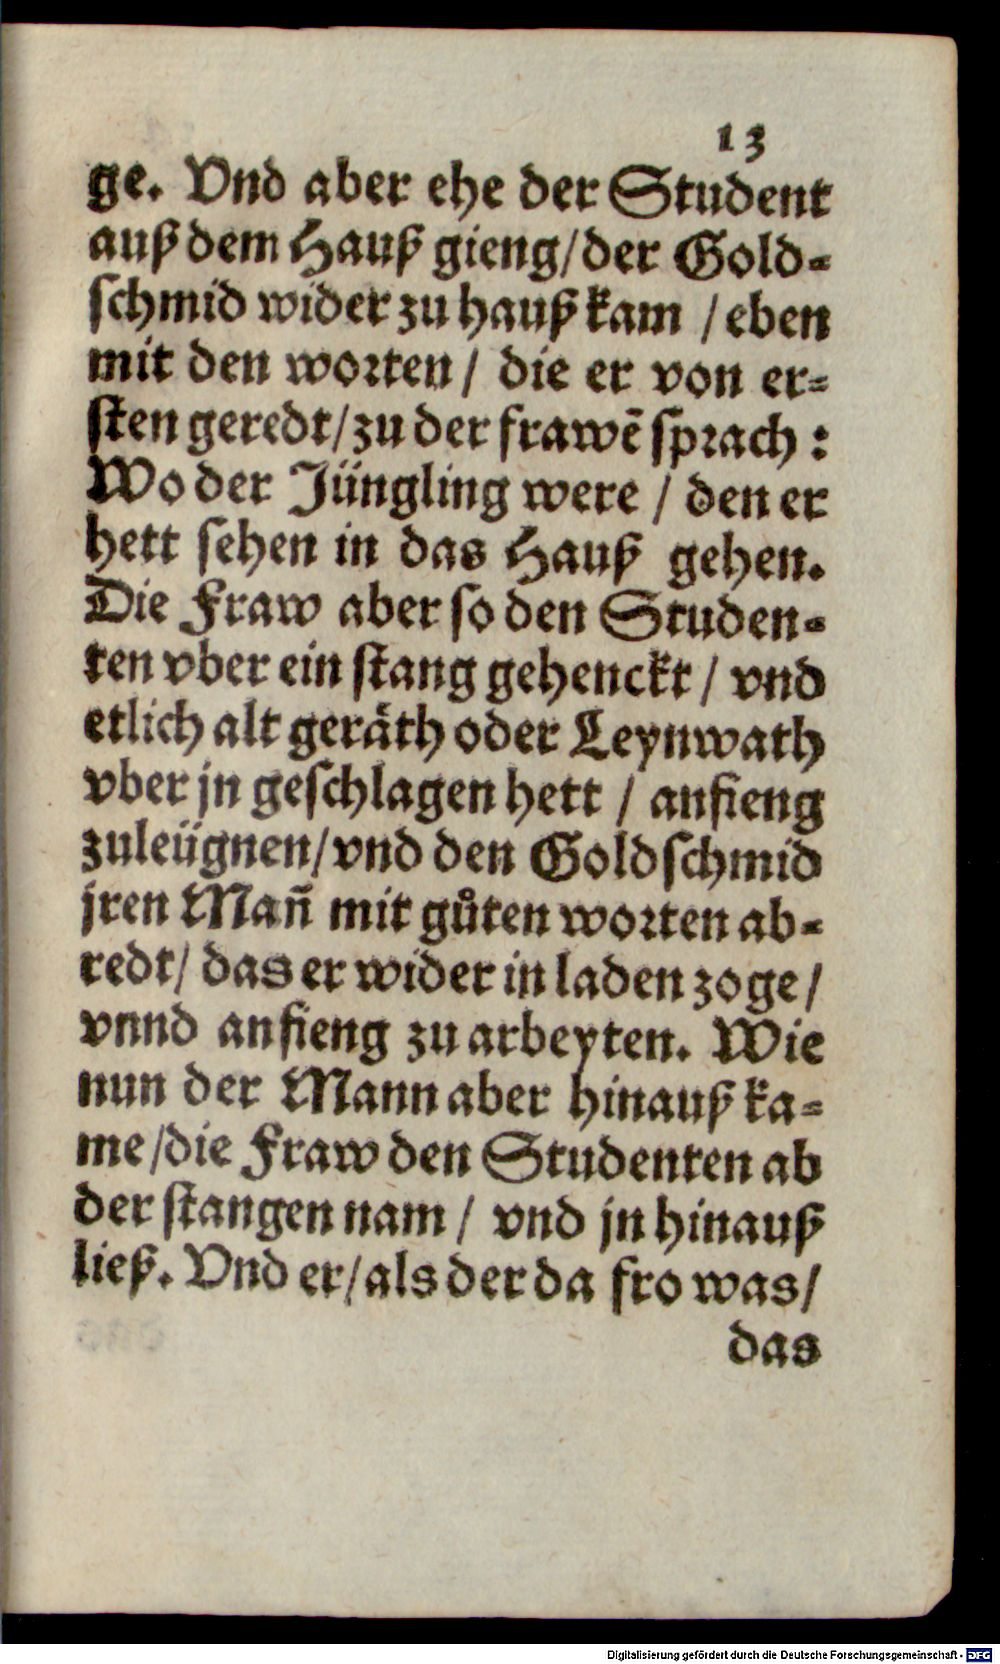 13
ge. Vnd aber ehe der Student
auß dem Hauß gieng/der Gold-
schmid wider zu hauß kam / eben
mit den worten / die er von er-
sten geredt/zu der frawē sprach :
Wo der Jüngling were / den er
hett sehen in das Hauß gehen.
Die Fraw aber so den Studen-
ten vber ein stang gehenckt / vnd
etlich alt geräth oder Leynwath
vber jn geschlagen hett / anfieng
zuleügnen/vnd den Goldschmid
jren Mañ mit gůten worten ab-
redt/ das er wider in laden zoge /
vnnd anfieng zu arbeyten. Wie
nun der Mann aber hinauß ka-
me /die Fraw den Studenten ab
der stangen nam / vnd jn hinauß
ließ. Vnd er/ als der da fro was/
das
Digitalisierung gefördert durch die Deutsche Forschungsgemeinschaft - DFG